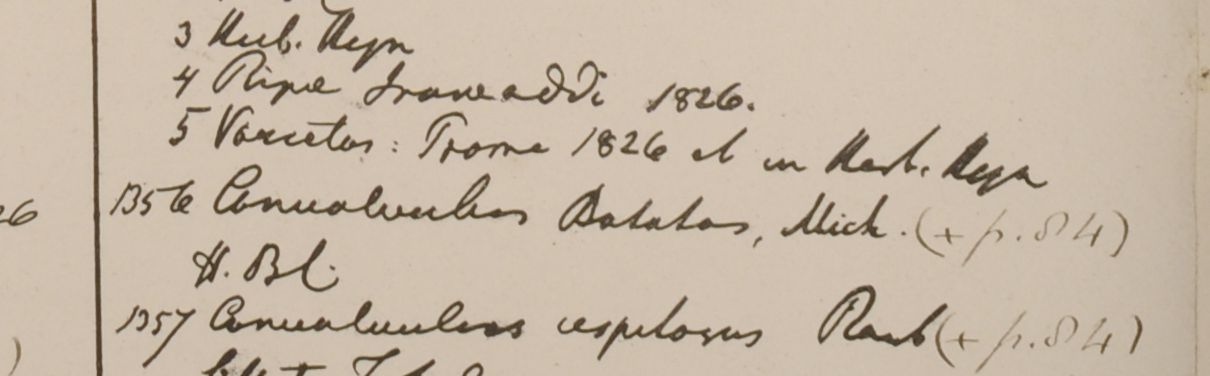 26
3 Herb. Heyn
4 Ripa Irawaddi 1826.
5 Varietas: Prome 1826 et in Herb. Heyn
1356 Convolvulus Batatas, Mich. (+ p. 84)
H. Bl.
1357 Convolvulus cespitosus Roxb (+ p. 84)
)